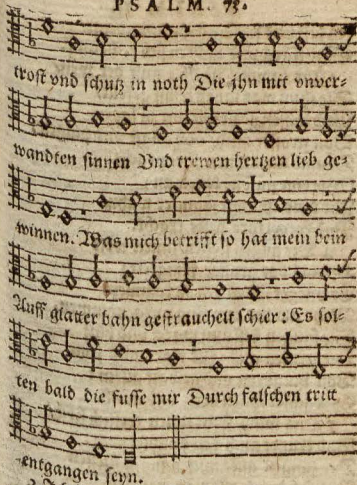 PSALM. 73.
trost vnd schutz in noth Die jhn mit vnver-
wandten sinnen Vnd trewen hertzen lieb ge-
winnen. Was mich betrifft so hat mein bein
Auff glatter bahn gestrauchelt schier: Es sol-
ten bald die fusse mir Durch falschen tritt
entgangen seyn.